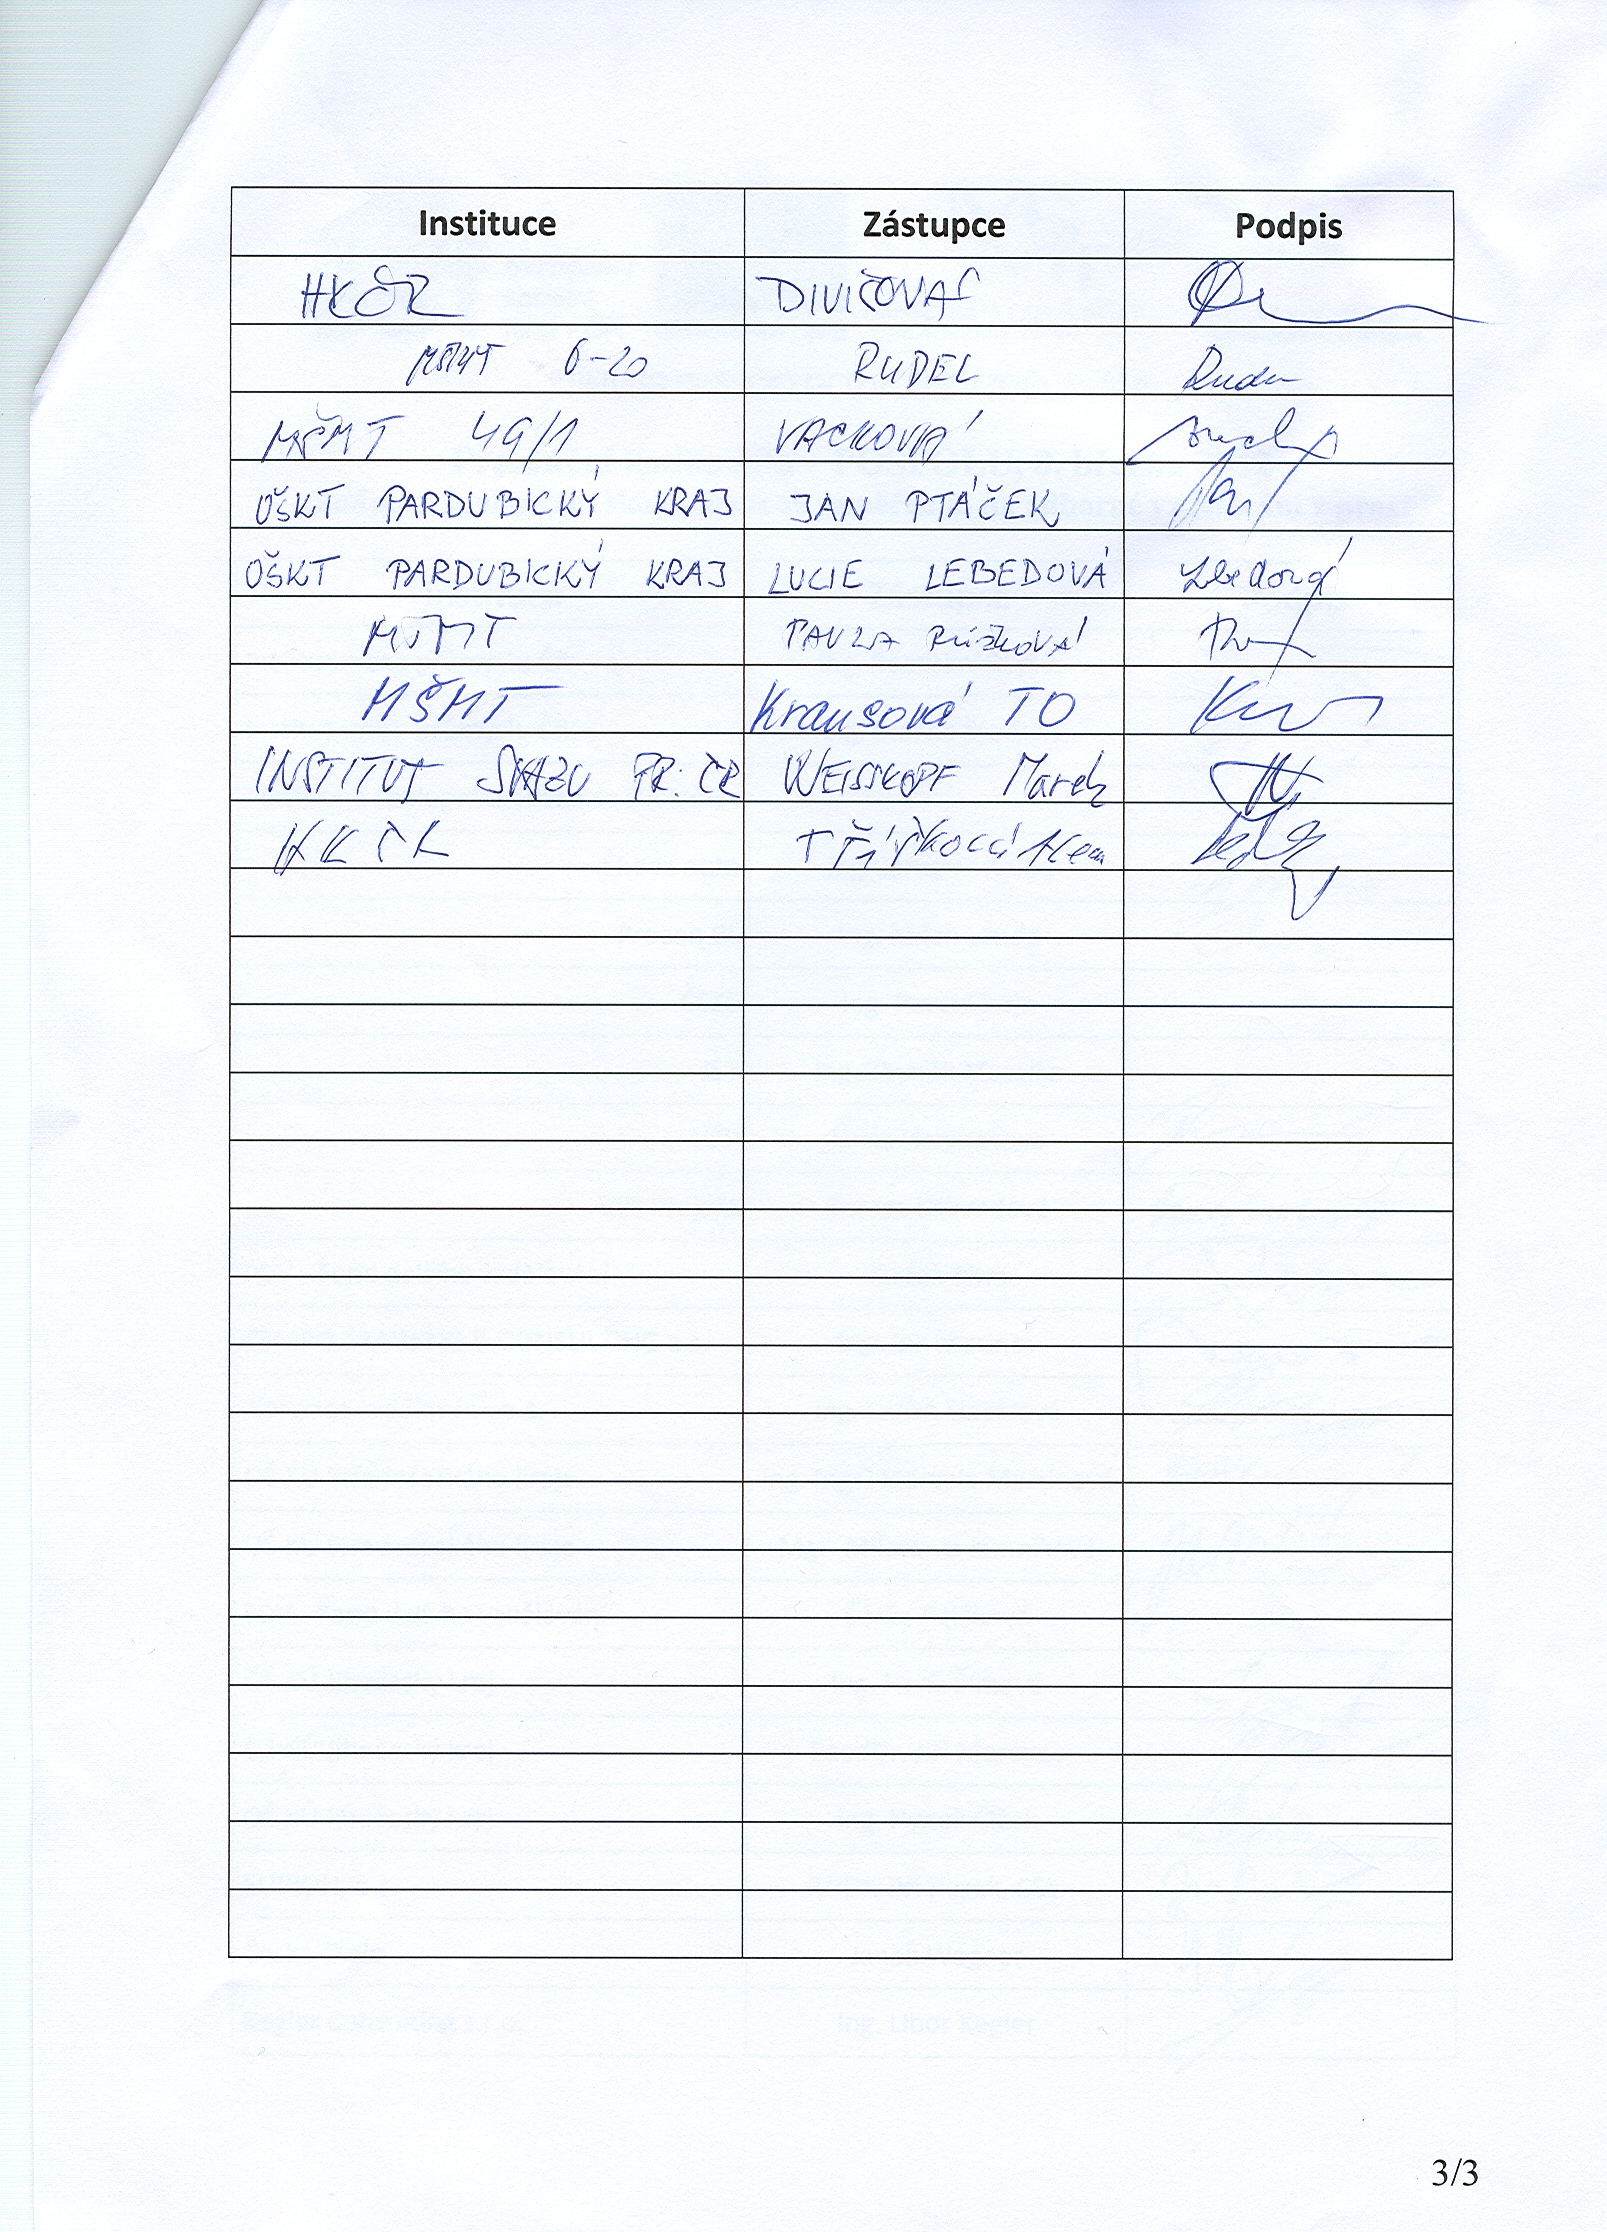 Instituce Zástupce Podpis
HKČR DIVIČOVÁ
MŠMT 6-20 RUDEL
MŠMT 49/1 VACKOVÁ
OŠKT PARDUBICKÝ KRAJ JAN PTÁČEK
OŠKT PARDUBICKÝ KRAJ LUCIE LEBEDOVÁ Lebedová
MŠMT PAVLA RŮŽKOVÁ
MŠMT Krausová TO
INSTITUT SVAZU PR. ČR WEISSKOPF Marek
HK ČR
3/3